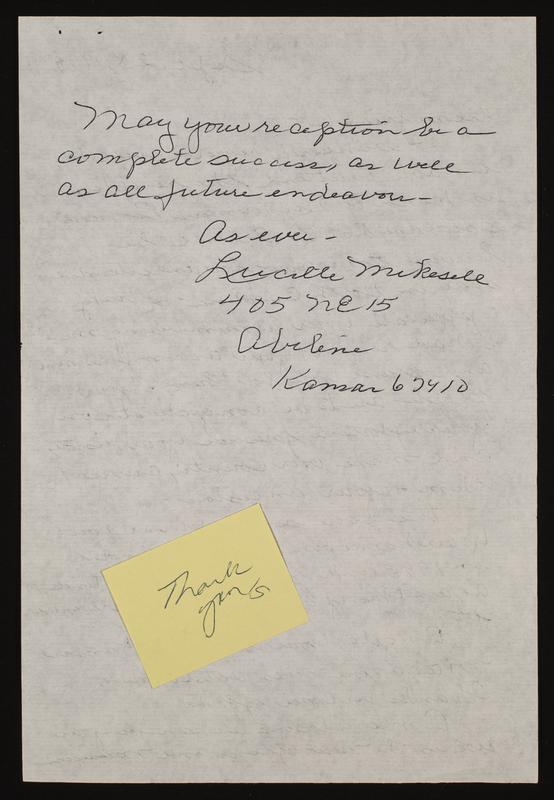 May your reception be a
complete success, as well
as all future endeavor-
As ever -
Lucille Mikesell
405 NE 15
Abilene
Kansas 67410
Thank
you